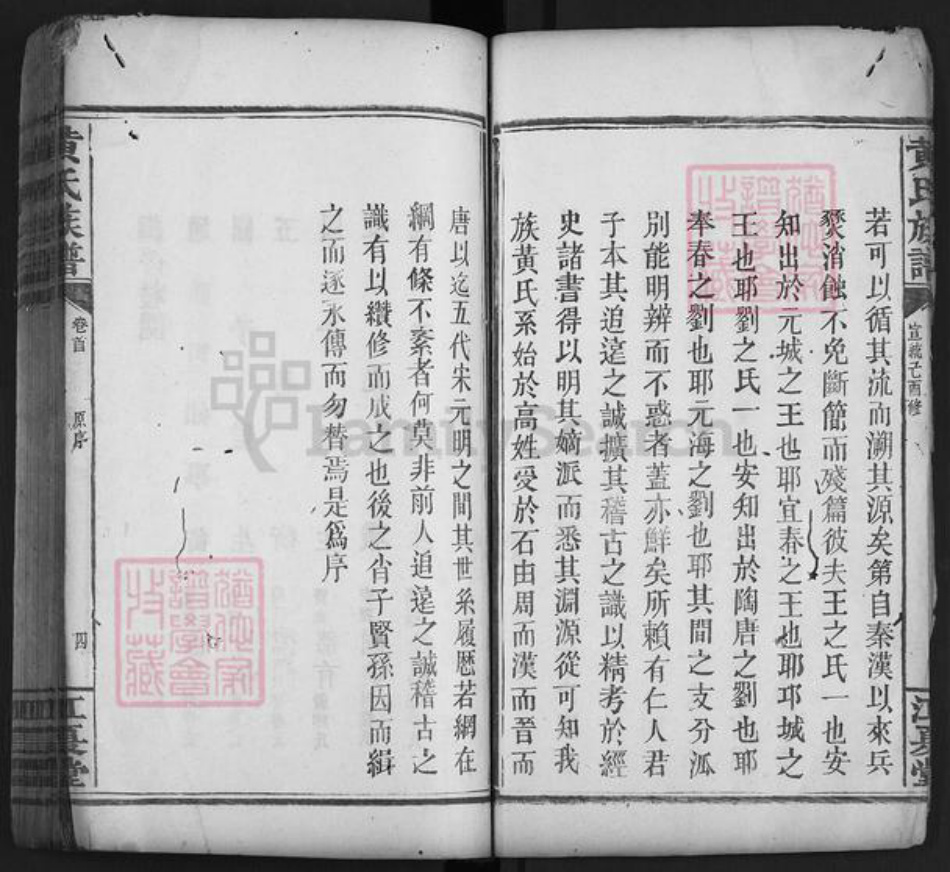 黃氏族譜
宣統己酉修
江夏堂
若可以循其流而溯其源矣第自秦漢以來兵
燹消蝕不免斷簡而殘篇彼夫王之氏一也安
知出於元城之王也耶宜春之王也耶邛城之
王也耶劉之氏一也安知出於陶唐之劉也耶
奉春之劉也耶元海之劉也耶其間之支分派
別能明辨而不惑者蓋亦鮮矣所賴有仁人君
子本其追遠之誠擴其稽古之識以精考於經
史諸書得以明其嫡派而悉其淵源從可知我
族黃氏系始於高姓受於石由周而漢而晉而
唐以迄五代宋元明之間其世系履歷若網在
綱有條不紊者何莫非前人追遠之誠稽古之
識有以纘修而成之也後之肖子賢孫因而緝
之而逐永傳而勿替焉是爲序
黃氏族譜
卷首
原序
四
江夏堂
FamilySearch
譜學會
收藏
譜學會
收藏